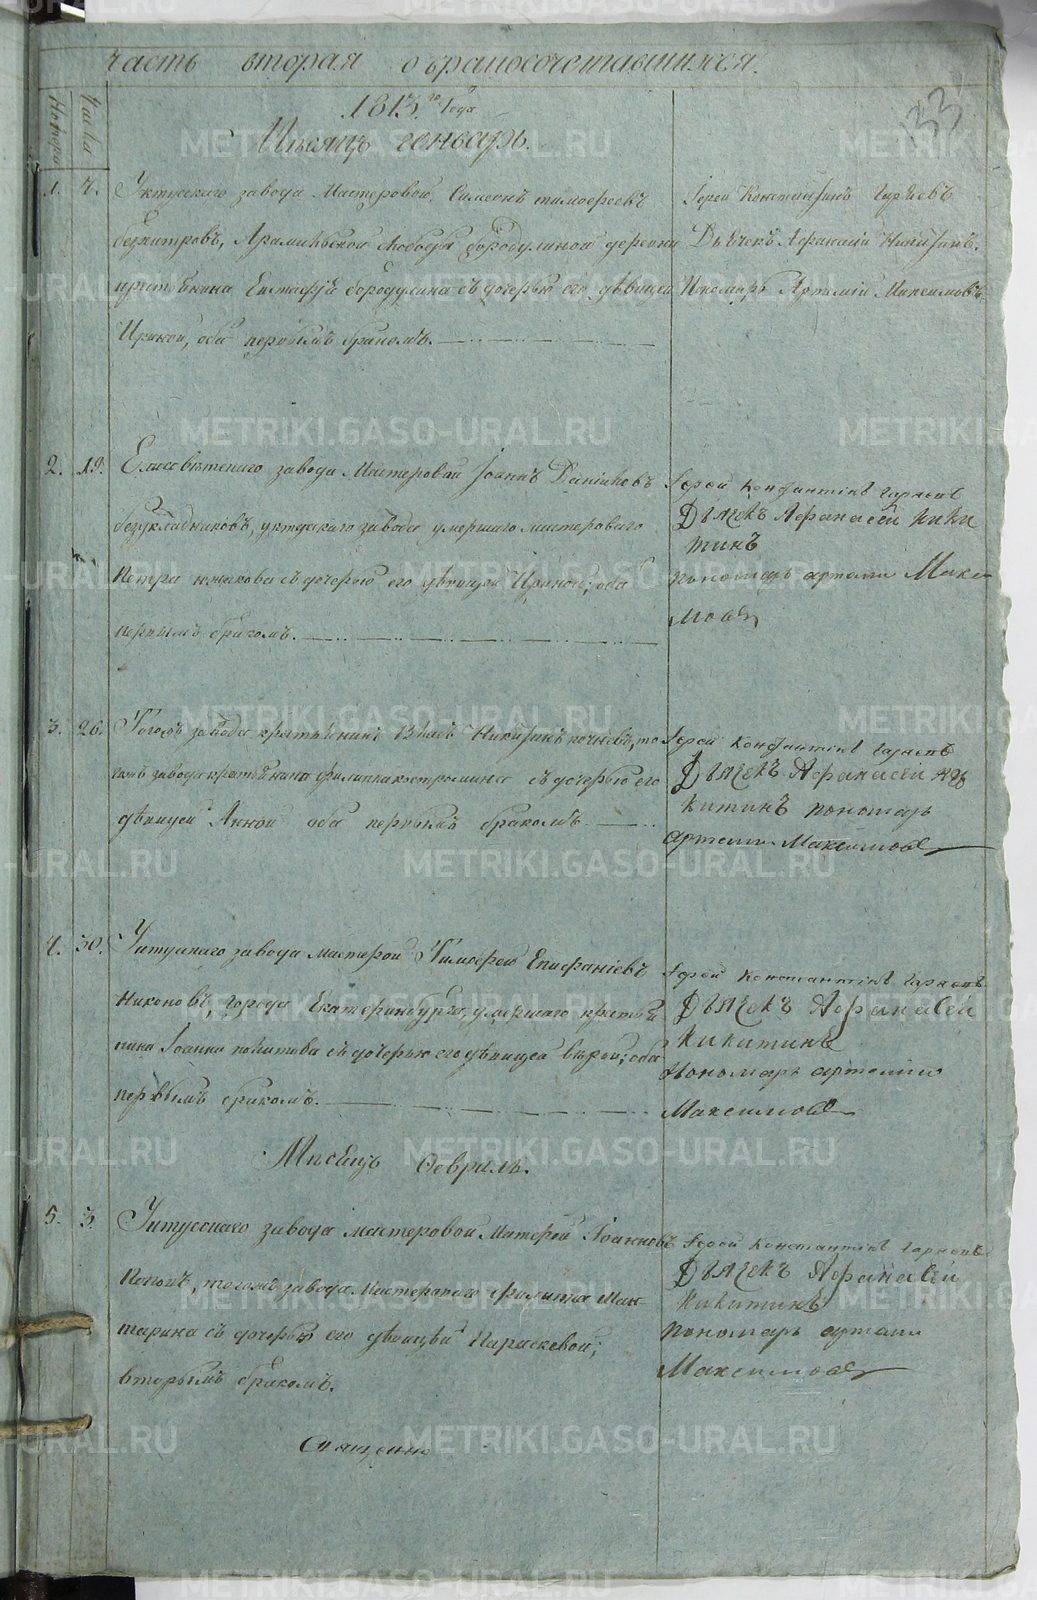 Часть вторая о бракосочетавшихся.
33
Номера
Числа
1813го Года
Месяцъ Генварь.
1. 7. Уктусскаго завода Мастеровой Симеонъ тимофеевъ
безхитровъ, Арамильской слободы бородулиной деревни
крестьянина Евстафія бородулина съ дочерью его девицей
Ириной, оба первымъ бракомъ.
Іерей Константинъ
Дьячекъ Афанасій Никитинъ.
Пономарь Артемій Максимовъ.
2. 19. Елисаветскаго завода Мастеровой Іоаннъ
уктусскаго завода умершаго мастероваго
Петра съ дочерью его девицей Ириной; оба
первымъ бракомъ.
Іерей Константинъ
Дьячекъ Афанасей Ники
тинъ
пономарь артеми Макси
мовъ
3. 26. Тогожъ завода крестьянинъ Никитинъ то
гожъ завода крестьянина филиппа костромина съ дочерью его
девицей Анной оба первымъ бракомъ
Іерей Константинъ
Дьячекъ Афанасей Ни
китинъ пономарь
артеми Максимовъ
4. 30. Уктускаго завода мастерой Тимофей Епифаніевъ
Никоновъ, города Екатеринбурга, умершаго крестья
нина Іоанна съ дочерью его девицей верой; оба
первымъ бракомъ.
Іерей Константинъ
Дьячекъ Афанасей
Никитинъ
Пономарь артемии
Максимовъ
Месяцъ Февраль.
5. 3. Уктусскаго завода мастеровой Матфей Іоанновъ
тогожъ завода Мастероваго филиппа
съ дочерью его девицей Параскевой;
вторымъ бракомъ.
Іерей Константинъ
Дьячекъ Афанасей
Никитинъ
Пономарь артеми
Максимовъ
Священно
METRIKI.GASO-URAL.RU